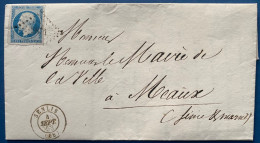 Monsieur
Monsieur le Maire de
la Ville
à Meaux
(Seine & marne)
SENLIS
4
SEPT